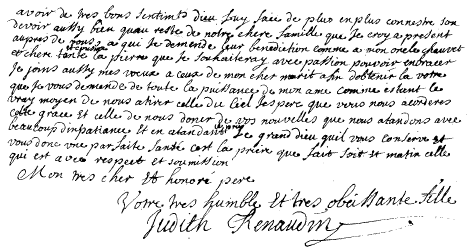 avoir de tres bons sentimts dieu luy faie de plus en plus connestre son
devoir aussy bien quau reste de notre chere famille que Je croy a present
aupres de vous a qui Je demende leur benediction comme a mon oncle chauvet
et chere tante la pierre que Je souhaiteray avec passion pouvoir embracer
Je joins aussy mes voeux a ceux de mon cher marit afin dobtenir la votre
que Je vous demende de toute la puissance de mon ame comme estant le
vray moyen de nous atirer celle du Ciel Jespere que vous nous acorderes
cette grace Et celle de nous doner de vos nouvelles que nous atandons avec
beaucoup dinpatiance Et en atandant le grand dieu quil vous conserve et
vous done une parfaite santé cest la priere que fait soir et matin celle
qui est avec respect et soumission
Mon tres cher Et honoré pere
Votre tres humble Et tres obeissante fille
Judith Renaudin